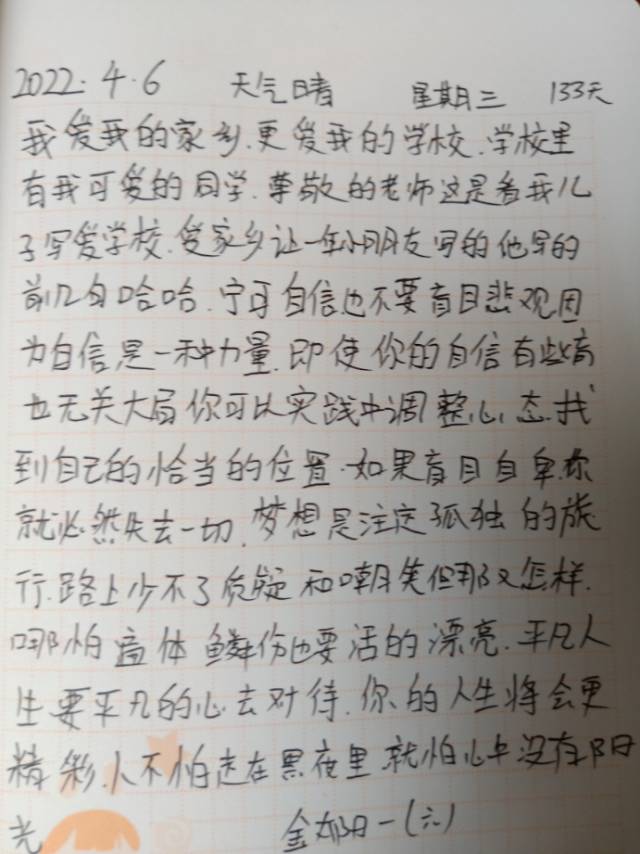 2022.4.6 天气晴 星期三 133天
我爱我的家乡.更爱我的学校.学校里
有我可爱的同学.尊敬的老师这是看我儿
子写爱学校.爱家乡让一年小朋友写的他写的
前几句哈哈.宁可自信也不要盲目悲观因
为自信是一种力量.即使你的自信有些盲
也无关大局你可以实践中调整心态.找
到自己的恰当的位置.如果盲目自卑.你
就必然失去一切.梦想是注定孤独的旅
行.路上少不了质疑和嘲笑但那又怎样.
哪怕遍体鳞伤也要活的漂亮.平凡人
生要平凡的心去对待.你的人生将会更
精彩.人不怕走在黑夜里.就怕心中没有阳
光 金 一(六)